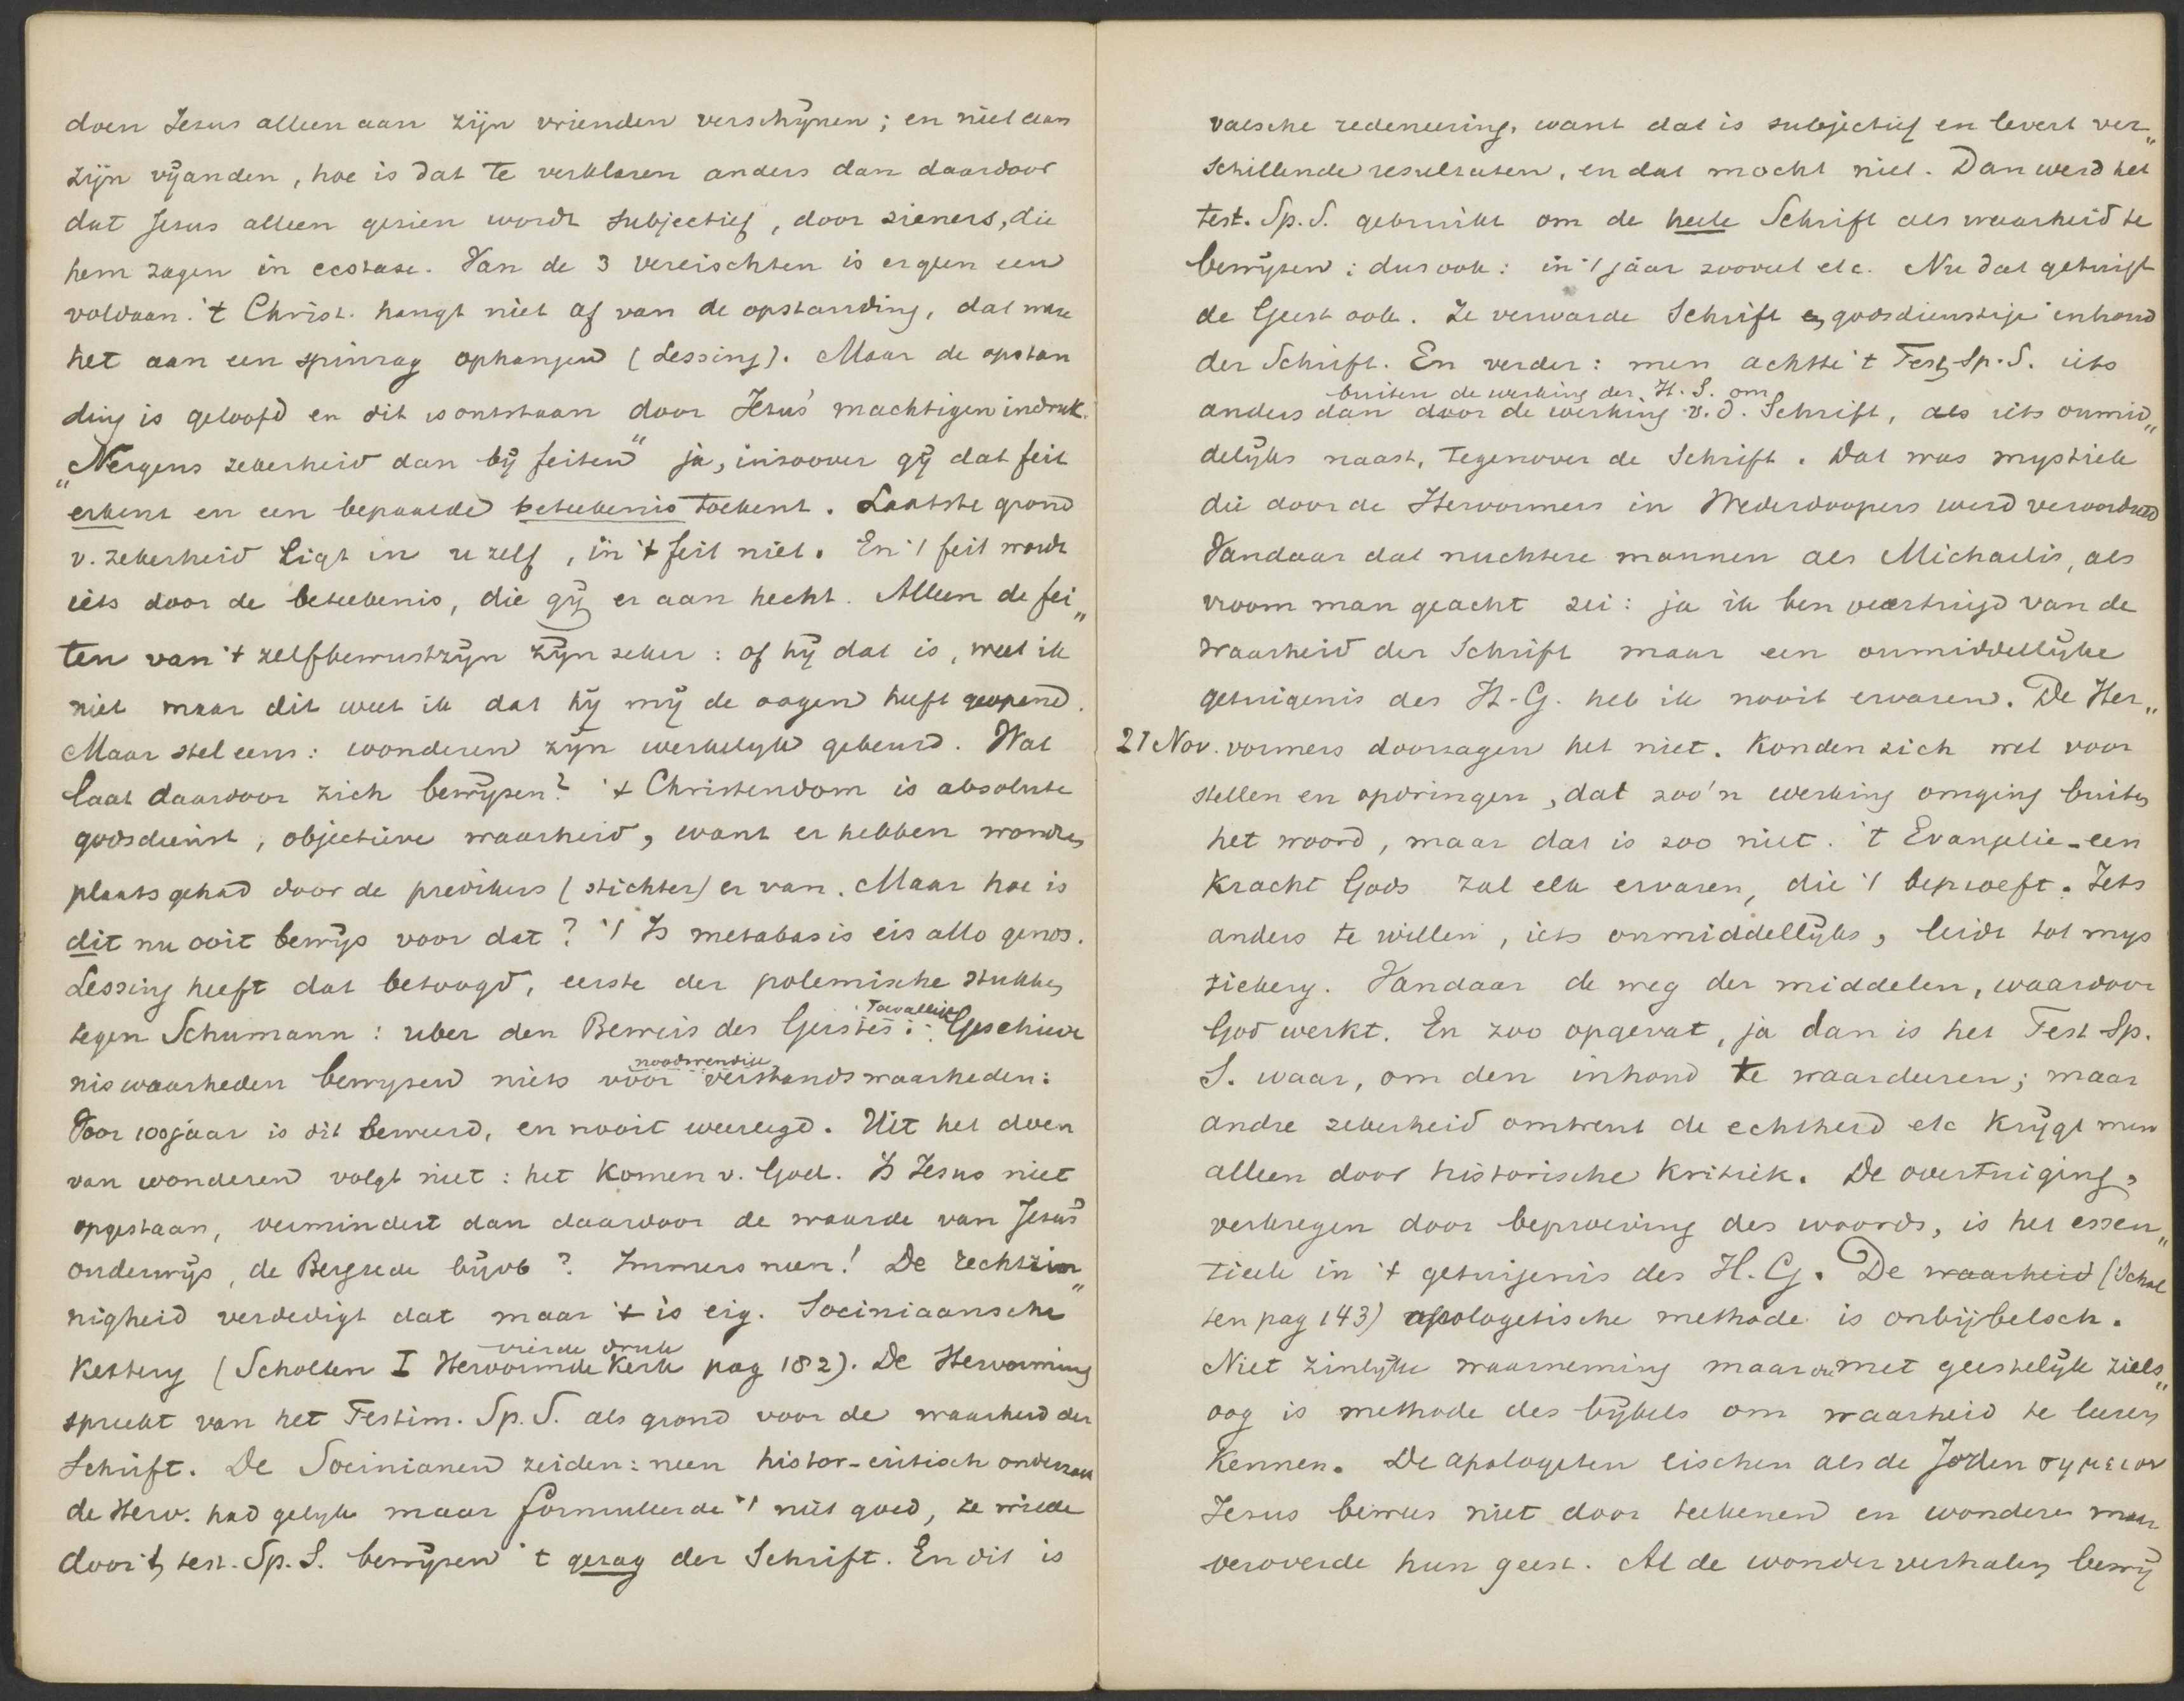 doen Jesus alleen aan zijn vrienden verschijnen; en niet aan
zijn vijanden, hoe is dat te verklaren anders dan daardoor
dat Jesus alleen gezien wordt subjectief, door zieners, die
hem zagen in ecstase. Van de 3 vereischten is er geen een
voldaan. 't Christ. hangt niet af van de opstanding, dat ware
het aan een spinrag ophangen (Lessing). Maar de opstan
ding is geloofd en dit is ontstaan door Jesus' machtigen indruk.
„Nergens zekerheid dan bij feiten" ja, inzoover gij dat feit
erkent en een bepaalde beteekenis toekent. Laatste grond
v. zekerheid ligt in u zelf, in 't feit niet. En 't feit wordt
iets door de beteekenis, die gij er aan hecht. Alleen de fei„
ten van 't zelfbewustzijn zijn zeker: of hij dat is, weet ik
niet maar dit weet ik dat hij mij de oogen heeft geopend.
Maar stel eens: wonderen zijn werkelijk gebeurd. Wat
laat daardoor zich bewijzen? 't Christendom is absolute
godsdienst, objectieve waarheid, want er hebben wondren
plaats gehad door de predikers (stichter) er van. Maar hoe is
dit nu ooit bewijs voor dat? 't Is metabasis eis allo genos.
Lessing heeft dat betoogd, eerste der polemische stukken
tegen Schumann: uber den Beweis des Geistes: Toevallige Geschiede
niswaarheden bewyzen niets voor noodwendige verstandswaarheden:
Voor 100 jaar is dit beweerd, en nooit weerlegd. Uit het doen
van wonderen volgt niet: het komen v. God. Is Jesus niet
opgestaan, vermindert dan daardoor de waarde van Jesus'
onderwijs, de Bergrede bijvb? Immers neen! De rechtzin„
nigheid verdedigt dat maar 't is eig. Sociniaansche
Kettery (Scholten I Hervormde Kerk vierde druk pag 182). De Hervorming
spreekt van het Testim. Sp. S. als grond voor de waarheid der
Schrift. De Socinianen zeiden: neen histor-critisch onderzoek
de Herv. had gelijk maar formuleerde 't niet goed, ze wilde
door 't test. Sp. S. bewijzen 't gezag der Schrift. En dit is
valsche redeneering, want dat is subjectief en levert ver„
schillende resultaten, en dat mocht niet. Dan werd het
test. Sp. S. gebruikt om de heele Schrift als waarheid te
bewijzen: dus ook: in 't jaar zooveel etc. Nu dat getuigt
de Geest ook. Ze verwarde Schrift en godsdienstige inhoud
der Schrift. En verder: men achtte 't Test. Sp. S. iets
buiten de werking der H. S. om
anders dan door de werking v. d. Schrift, als iets onmid„
delijks naast, tegenover de Schrift. Dat was mystiek
die door de Hervormers in Wederdoopers werd veroordeeld
Vandaar dat nuchtere mannen als Michaelis, als
vroom man geacht zei: ja ik ben overtuigd van de
waarheid der Schrift maar een onmiddellijke
getuigenis des H. G. heb ik nooit ervaren. De Her„
21 Nov. vormers doorzagen het niet. Konden zich wel voor
stellen en opdringen, dat zoo'n werking omging buiten
het woord, maar dat is zoo niet. 't Evangelie-een
Kracht Gods zal elk ervaren, die 't beproeft. Iets
anders te willen, iets onmiddellijks, leidt tot mys
tiekery. Vandaar de weg der middelen, waardoor
God werkt. En zoo opgevat, ja dan is het Test Sp.
S. waar, om den inhoud te waardeeren; maar
andre zekerheid omtrent de echtheid etc krijgt men
alleen door historische Kritiek. De overtuiging,
verkregen door beproeving des woords, is het essen„
tieele in 't getuigenis des H. G. De waarheid (Schol
ten pag 143) apologetische methode is onbijbelsch.
Niet zinlijke waarneming maar met geestelijk ziels„
oog is methode des bijbels om waarheid te leeren
Kennen. De apologeten eischen als de Joden σημειον
Jesus bewees niet door teekenen en wonderen maar
veroverde hun geest. Al de wonderverhalen bewij